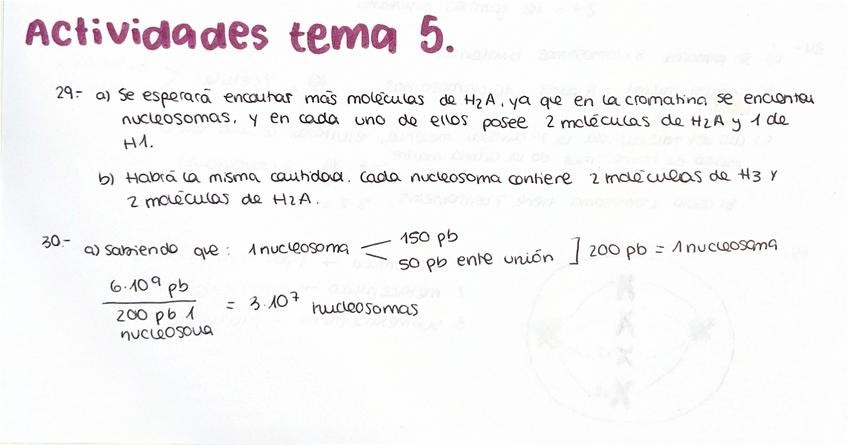 Actividades tema 5.
29.- a) Se esperará encontrar más moléculas de H2A, ya que en la cromatina se encuentra
nucleosomas, y en cada uno de ellos posee 2 moléculas de H2A y 1 de
H1.
b) Habrá la misma cantidad. Cada nucleosoma contiene 2 moléculas de H3 y
2 moléculas de H2A.
30.- a) Sabiendo que: 1 nucleosoma < 150 pb
50 pb ente unión ] 200 pb = 1 nucleosoma
6·10⁹ pb
200 pb 1 = 3·10⁷ nucleosomas
nucleosoma